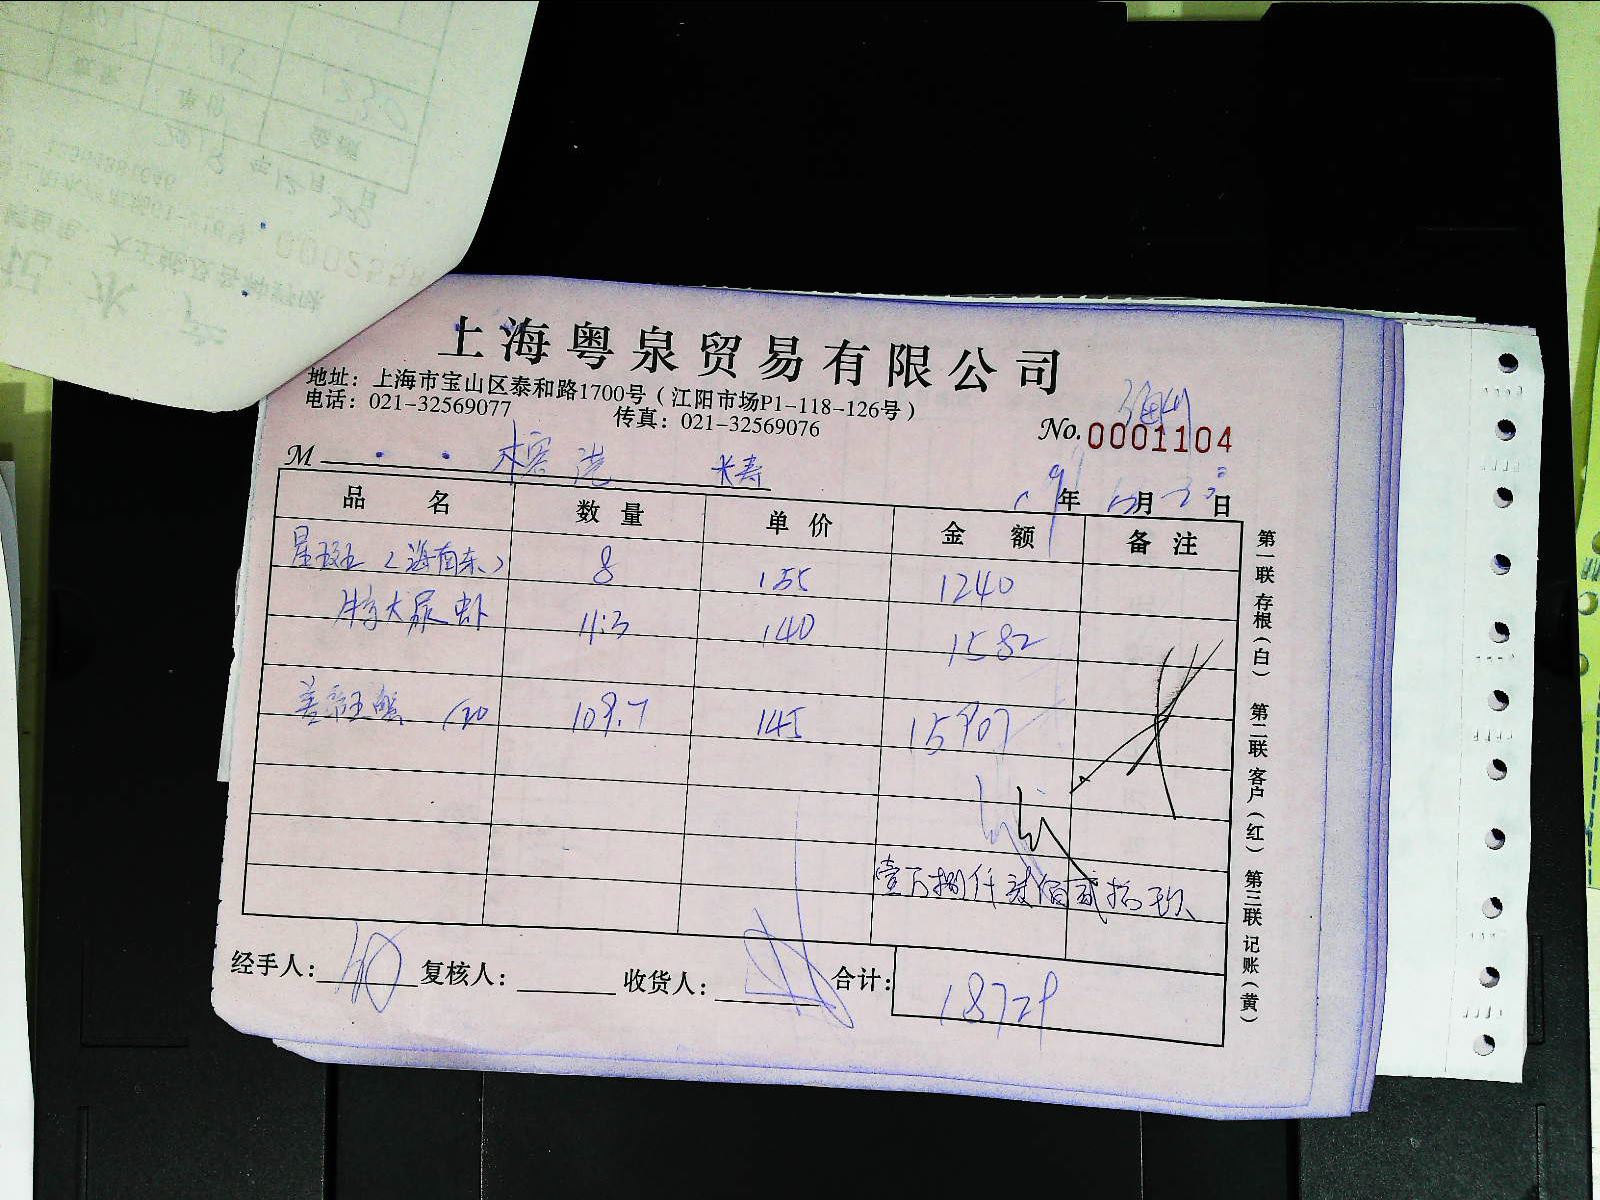 上海粤泉贸易有限公司
地址：上海市宝山区泰和路1700号（江阳市场P1-118-126号）
电话：021-32569077 传真：021-32569076
No.0001104
M 长寿
19年 月 日
品名 数量 单价 金额 备注
星斑（海南东） 8 155 1240
特大尿虾 11.3 140 1582
109.7 145 15907
壹万捌仟 佰贰拾 玖
经手人： 复核人： 收货人： 合计：18729
第一联 存根（白） 第二联 客户（红） 第三联 记账（黄）